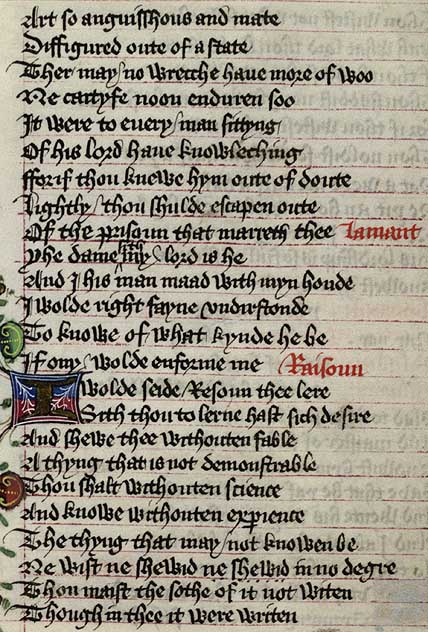 Art so anguisshous and mate
Diffigured oute of astate
Ther may no wrecche haue more of woo
Ne caityfe noon enduren soo
It were to euery man sittyng
Of his lord haue knowleching
fforif thou knewe hym oute of doute
Lightly thou shulde escapen oute
Of the prisoun that marreth thee Lamant
Yhe dame sith my lord is he
And I his man maad with myn honde
I wolde right fayne vndirstonde
To knowe of what kynde he be
If ony wolde enforme me Raisoun
I wolde seide Resoun thee lere
Sith thou to lerne hast sich desire
And shewe thee withouten fable
A thyng that is not demonstrable
Thou shalt withouten science
And knowe withouten experience
The thyng that may not knowen be
Ne wist ne shewid ne shewid in no degre
Thou maist the sothe of it not witen
Though in thee it were writen